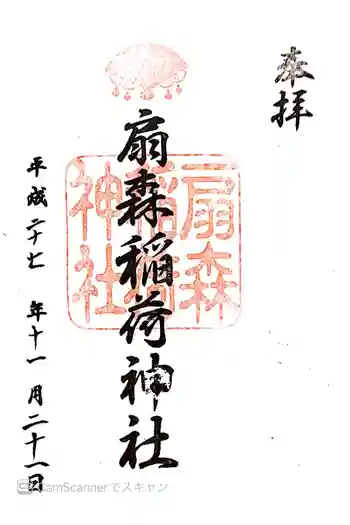 奉拝
扇森稲荷神社
扇森
稲荷
神社
平成二十七年十一月二十一日
CamScannerでスキャン